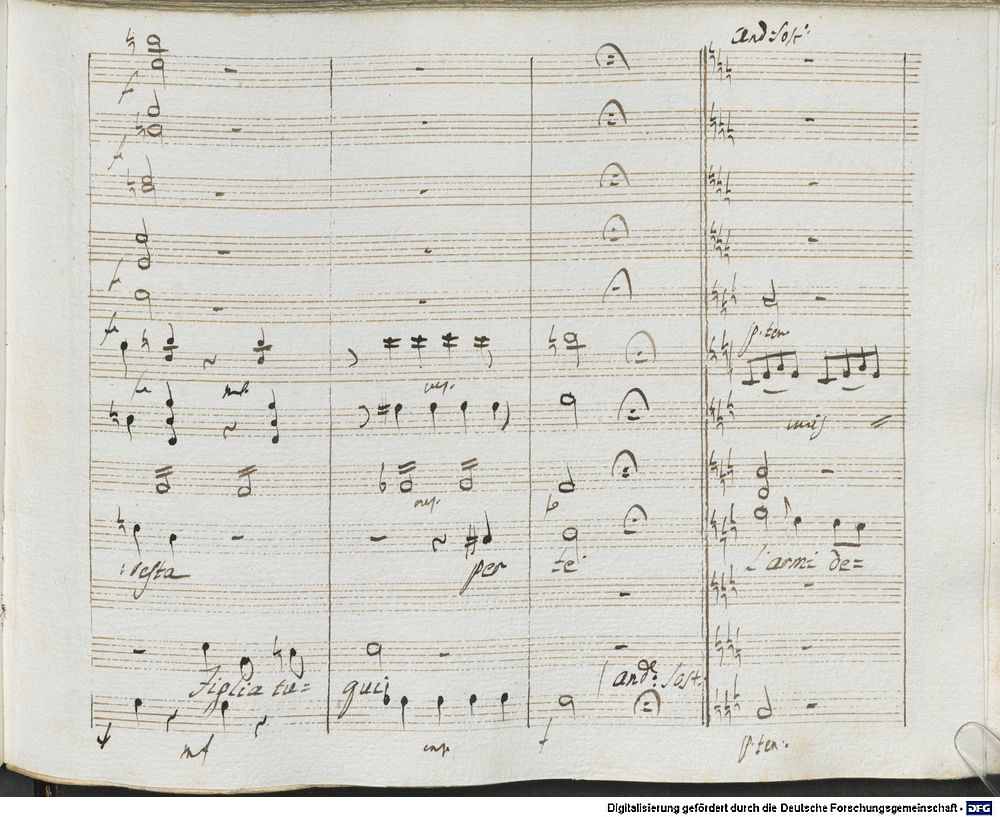 And: Sost:
f
f
f
fe
p. ten
fe
mf
cresc.
unis
cresc.
vesta
per
te
L'armi de=
Figlia tu=
qui
And.e Sost:
mf
f
p. ten:
Digitalisierung gefördert durch die Deutsche Forschungsgemeinschaft - DFG